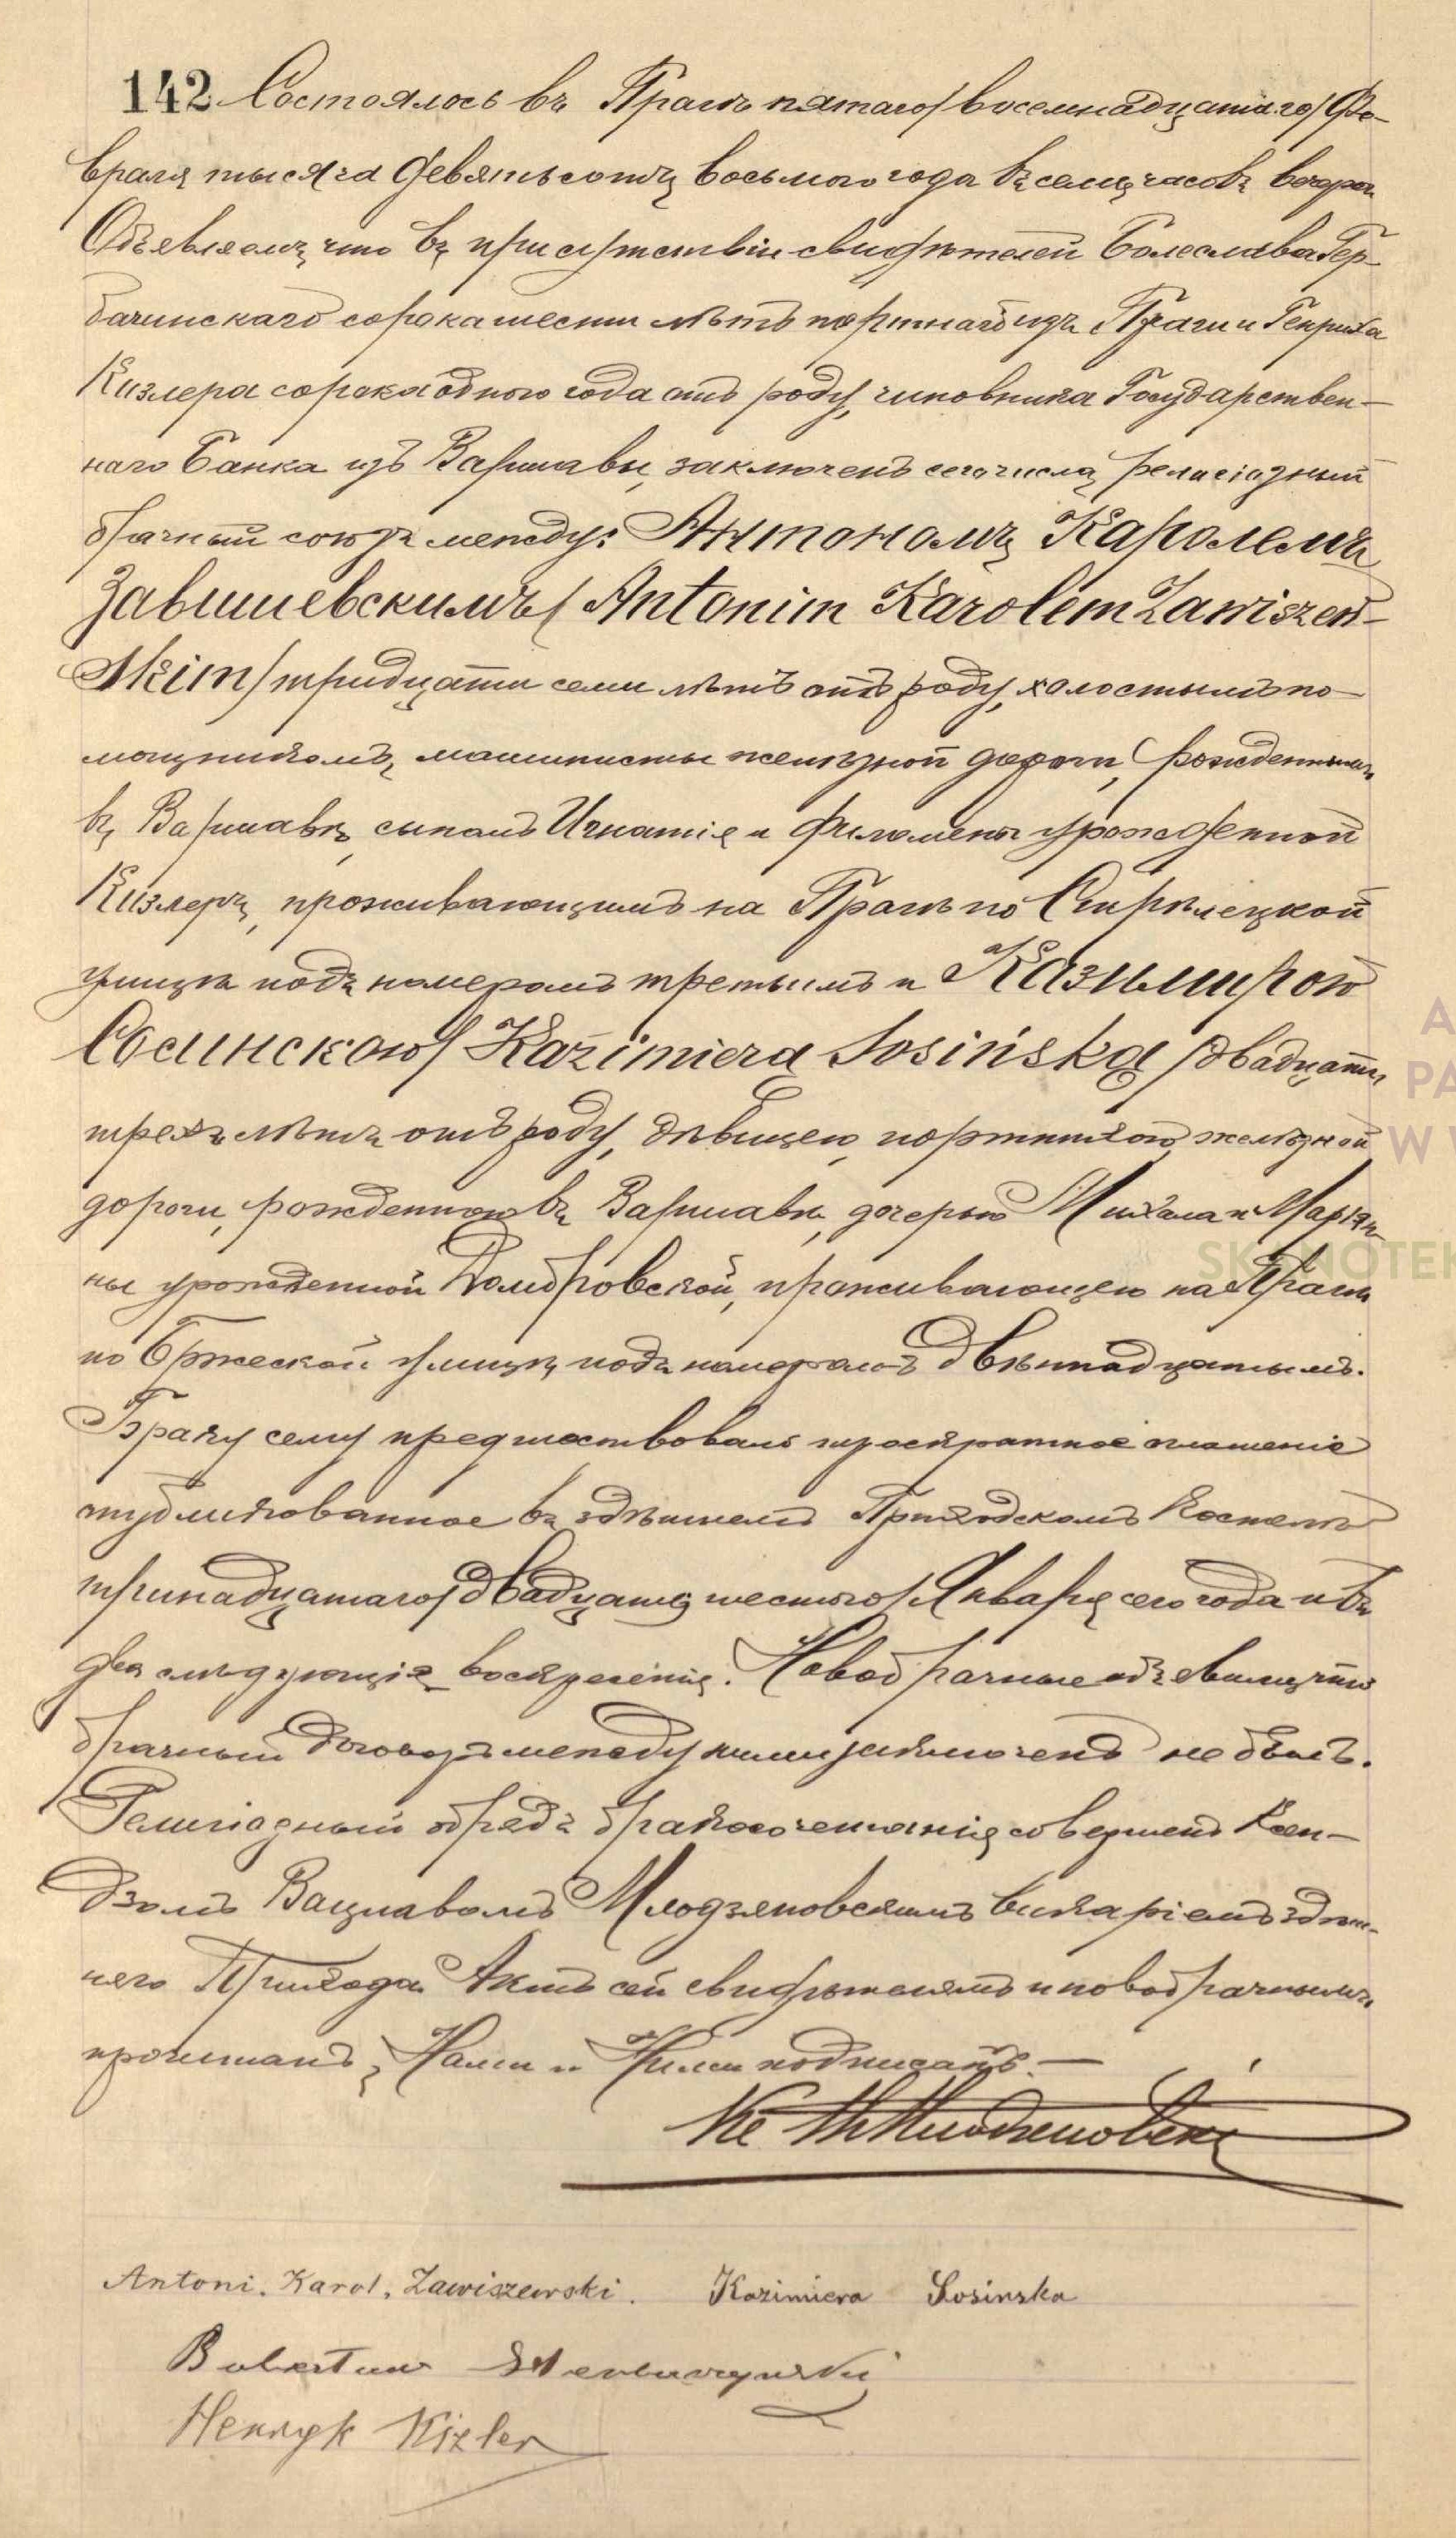 142 Состоялось въ Прагѣ пятаго/восемнадцатаго/Фе-
враля тысяча девятьсотъ восьмого года въ семь часовъ вечера
Объявляемъ, что въ присутствіи свидѣтелей Болеслава Гер-
бачинскаго сорока шести лѣтъ портнаго изъ Праги и Генриха
Кизлера сорока одного года отъ роду, чиновника Государствен-
наго Банка изъ Варшавы, заключенъ сего числа религіозный
брачный союзъ между: Антономъ Каролемъ
Завишевскимъ/Antonim Karolem Zawiszew-
skim/тридцати семи лѣтъ отъ роду, холостымъ по-
мощникомъ машинисты желѣзной дороги, рожденнымъ
въ Варшавѣ, сыномъ Игнатія и Филомены урожденной
Кизлеръ, проживающимъ на Прагѣ по Стрѣлецкой
улицѣ подъ номеромъ третьимъ и Казимирою
Сосинскою/Kazimierą Sosińską/двадцати
трехъ лѣтъ отъ роду, дѣвицею, портнихою желѣзной
дороги, рожденною въ Варшавѣ, дочерью Михала и Маріан-
ны урожденной Домбровской, проживающею на Прагѣ
по Бржеской улицѣ подъ номеромъ двѣннадцатымъ.
Браку сему предшествовало троекратное оглашеніе
опубликованное въ здѣшнемъ Приходскомъ Костелѣ
тринадцатаго/двадцать шестого/Января сего года и въ
два слѣдующія воскресенія. Новобрачные объявили, что
брачный договоръ между ними заключенъ не былъ.
Религіозный обрядъ бракосочетанія совершенъ Ксен-
дзомъ Вацлавомъ Млодзяновскимъ викаріемъ здѣш-
няго Прихода. Актъ сей свидѣтелямъ и новобрачнымъ
прочитанъ, Нами и Ними подписанъ.—
Antoni. Karol. Zawiszewski. Kazimiera Sosinska
Henryk Kizler